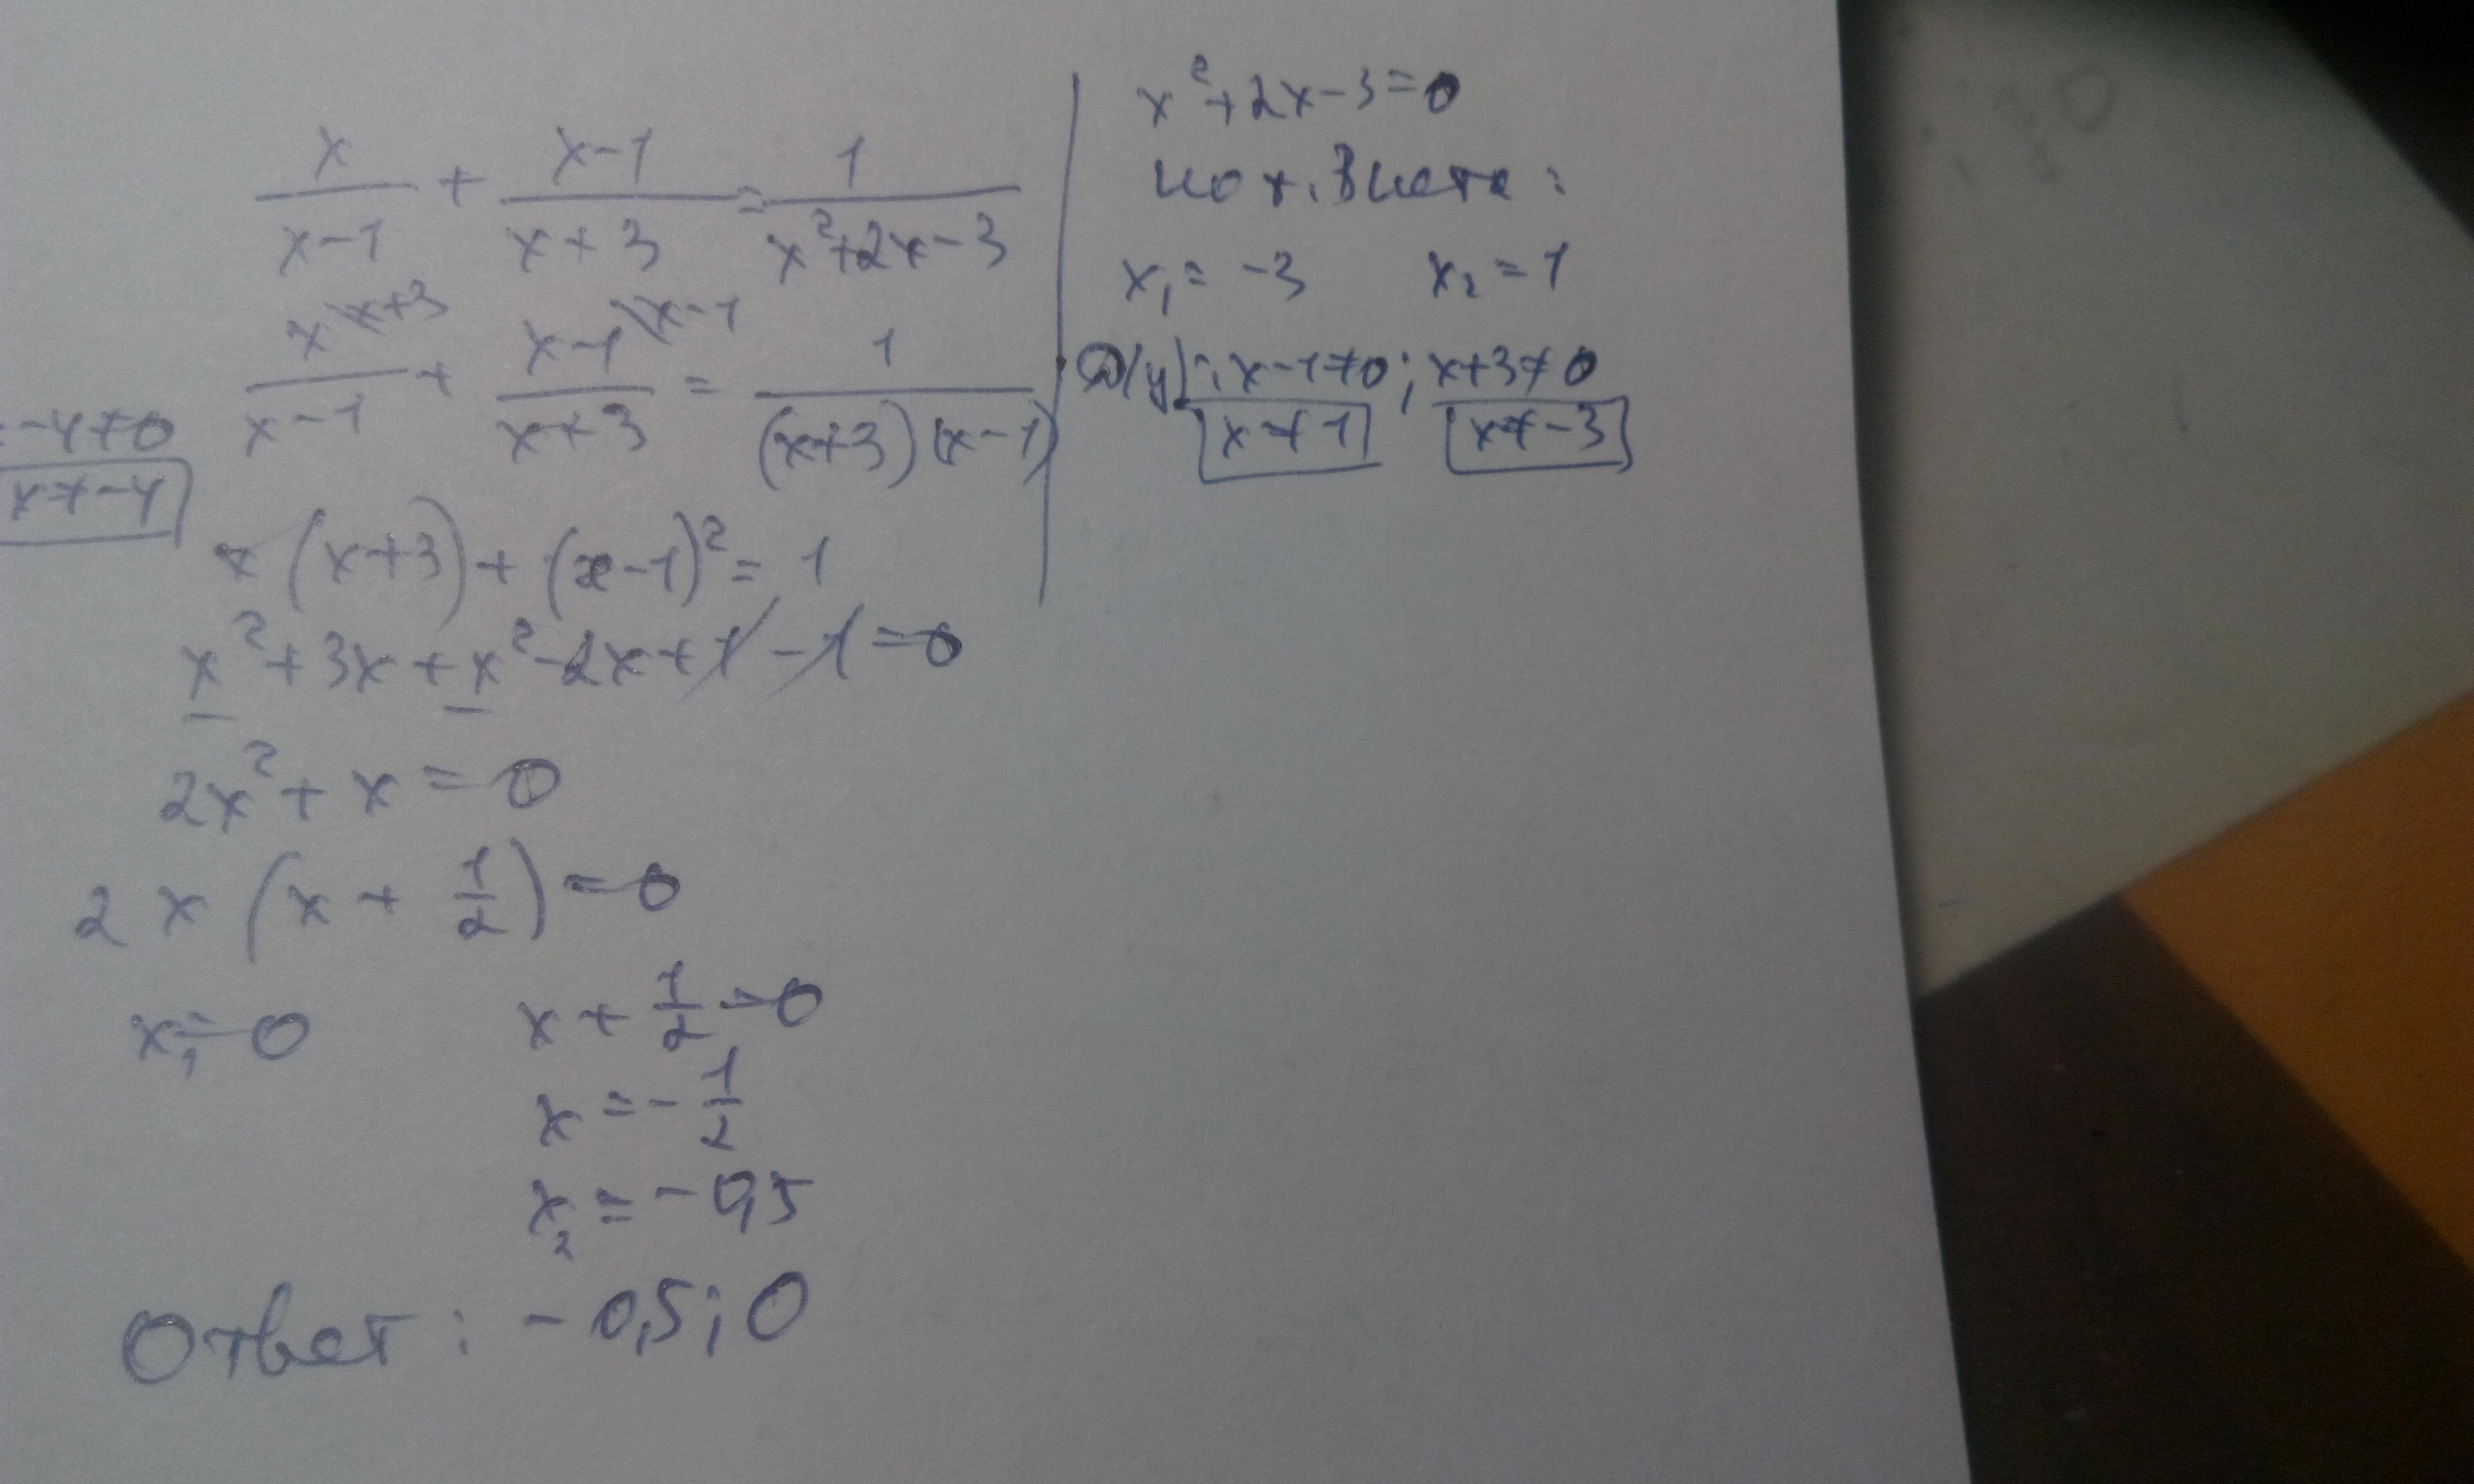 x/(x-1) + (x-1)/(x+3) = 1/(x²+2x-3)
x\x+3/(x-1) + x-1\x-1/(x+3) = 1/((x+3)(x-1))
x(x+3)+(x-1)²=1
x²+3x+x²-2x+1-1=0
2x²+x=0
2x(x+1/2)=0
x₁=0 x+1/2=0
x=-1/2
x₂=-0,5
Ответ: -0,5; 0
x²+2x-3=0
по т. Виета:
x₁=-3 x₂=1
D(y): x-1≠0; x+3≠0
x≠1 x≠-3
-4≠0
x≠-4